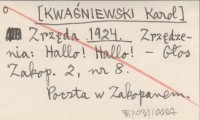 [KWAŚNIEWSKI Karol]
Zrzęda 1924. Zrzędze-
nia: Hallo! Hallo! – Głos
Zakop. 2, nr 8.
Poczta w Zakopanem.